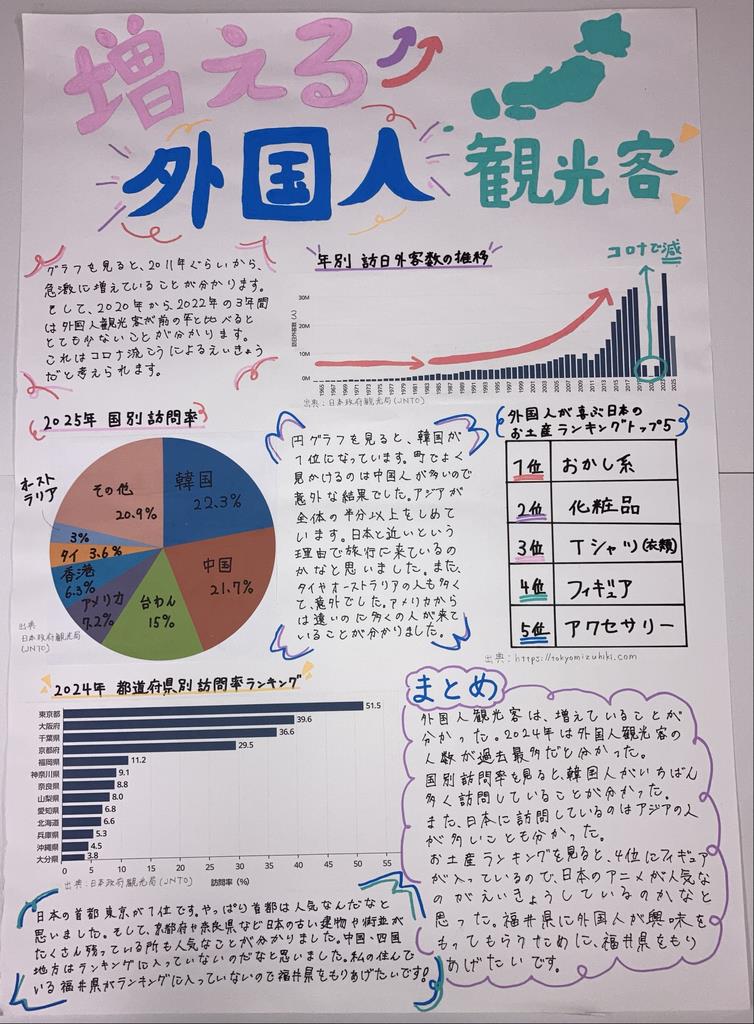 増える
外国人 観光客
グラフを見ると、2011年ぐらいから、
急激に増えていることが分かります。
そして、2020年から2022年の3年間
は外国人観光客が前の年と比べると
とても少ないことが分かります。
これはコロナ流こうによるえいきょう
だと考えられます。
年別 訪日外客数の推移
コロナで減
訪日外客数(人)
30M
20M
10M
0M
1965 1981 1983 1985 1987 1989 1991 1993 1995 1997 1999 2001 2003 2005 2007 2009 2011 2013 2015 2017 2019 2023 2025
出典:日本政府観光局(JNTO)
2025年 国別訪問率
韓国
22.3%
中国
21.7%
台わん
15%
アメリカ
7.2%
香港
6.3%
タイ 3.6%
オースト
ラリア
3%
その他
20.9%
出典
日本政府観光局
(JNTO)
円グラフを見ると、韓国が
1位になっています。町でよく
見かけるのは中国人が多いので
意外な結果でした。アジアが
全体の半分以上をしめて
います。日本と近いという
理由で旅行に来ているの
かなと思いました。また、
タイやオーストラリアの人も多く
て、意外でした。アメリカから
は遠いのに多くの人が来て
いることが分かりました。
外国人が喜ぶ日本の
お土産ランキングトップ5
1位 おかし系
2位 化粧品
3位 Tシャツ(衣類)
4位 フィギュア
5位 アクセサリー
出典:https://tokyomizuhiki.com
2024年 都道府県別訪問率ランキング
東京都 51.5
大阪府 39.6
千葉県 36.6
京都府 29.5
福岡県 11.2
神奈川県 9.1
奈良県 8.8
山梨県 8.0
愛知県 6.8
北海道 6.6
兵庫県 5.3
沖縄県 4.5
大分県 3.8
0 5 10 15 20 25 30 35 40 45 50 55
出典:日本政府観光局(JNTO) 訪問率(%)
日本の首都東京が1位です。やっぱり首都は人気なんだなと
思いました。そして、京都府や奈良県など日本の古い建物や街並が
たくさん残っている所も人気なことが分かりました。中国・四国
地方はランキングに入っていないのだなと思いました。私の住んで
いる福井県がランキングに入っていないので福井県をもりあげたいです!
まとめ
外国人観光客は、増えていることが
分かった。2024年は外国人観光客の
人数が過去最多だと分かった。
国別訪問率を見ると、韓国人がいちばん
多く訪問していることが分かった。
また、日本に訪問しているのはアジアの人
が多いことも分かった。
お土産ランキングを見ると、4位にフィギュア
が入っているので、日本のアニメが人気な
のがえいきょうしているのかなと
思った。福井県に外国人が興味を
もってもらうために、福井県をもり
あげたいです。